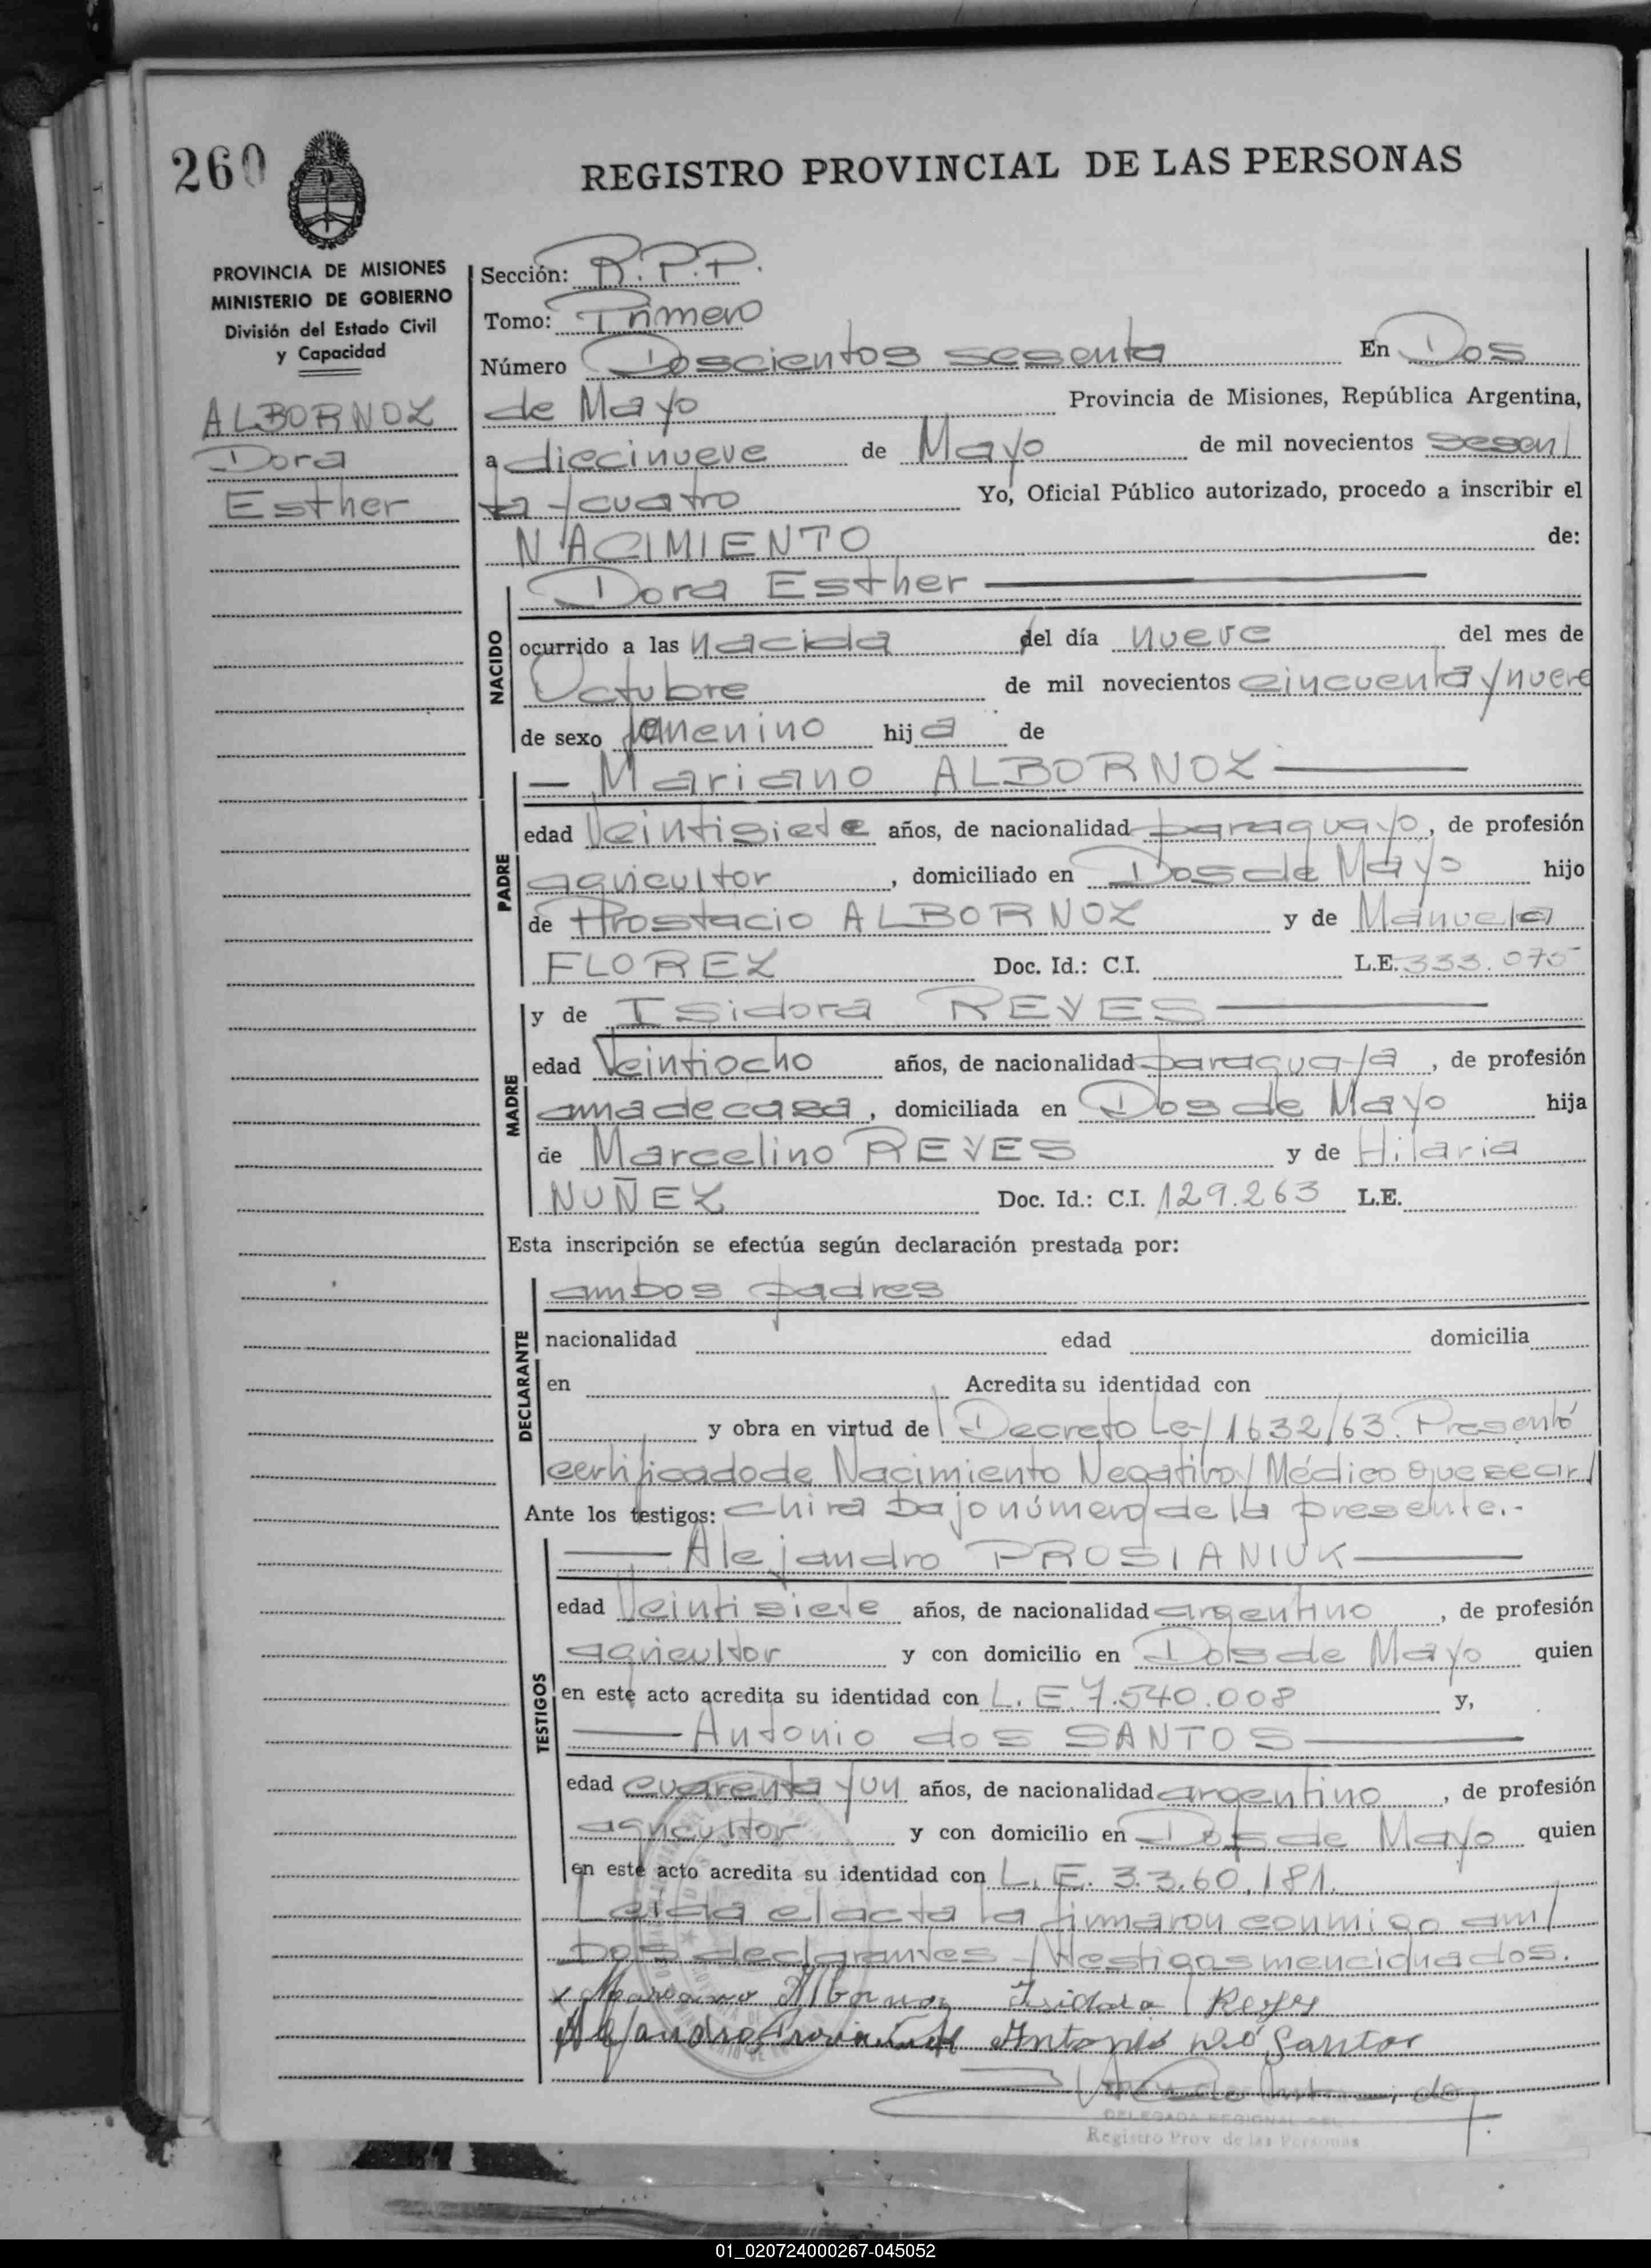 260
REGISTRO PROVINCIAL DE LAS PERSONAS
PROVINCIA DE MISIONES
MINISTERIO DE GOBIERNO
División del Estado Civil
y Capacidad
ALBORNOZ
Dora
Esther
Sección: R.P.P.
Tomo: Primero
Número Doscientos sesenta En Dos
de Mayo Provincia de Misiones, República Argentina,
a diecinueve de Mayo de mil novecientos sesen/
ta y cuatro Yo, Oficial Público autorizado, procedo a inscribir el
NACIMIENTO de:
NACIDO
Dora Esther
ocurrido a las nacida del día nueve del mes de
Octubre de mil novecientos cincuenta y nueve
de sexo femenino hija de
PADRE
Mariano ALBORNOZ
edad Veintisiete años, de nacionalidad paraguayo, de profesión
agricultor, domiciliado en Dos de Mayo hijo
de Prostacio ALBORNOZ y de Manuela
FLOREZ Doc. Id.: C.I. L.E. 333.075
MADRE
y de Isidora REYES
edad Veintiocho años, de nacionalidad paraguaya, de profesión
ama de casa, domiciliada en Dos de Mayo hija
de Marcelino REYES y de Hilaria
NUÑEZ Doc. Id.: C.I. 129.263 L.E.
Esta inscripción se efectúa según declaración prestada por:
DECLARANTE
ambos padres
nacionalidad edad domicilia
en Acredita su identidad con
y obra en virtud de Decreto Ley 1632/63. Presentó
certificado de Nacimiento Negativo y Médico que se ar/
Ante los testigos: chira bajo número de la presente.-
TESTIGOS
Alejandro PROSIANIUK
edad Veintisiete años, de nacionalidad argentino, de profesión
agricultor y con domicilio en Dos de Mayo quien
en este acto acredita su identidad con L.E. 7.540.008 y,
Antonio dos SANTOS
edad cuarenta y un años, de nacionalidad argentino, de profesión
agricultor y con domicilio en Dos de Mayo quien
en este acto acredita su identidad con L.E. 3.3.60.181.
Leída el acta la firmaron conmigo am/
bos declarantes y testigos mencionados.
x Mareano Albornoz Isidora Reyes
Alejandro Antonio Santos
DELEGADA REGIONAL
Registro Prov de las Personas
01_020724000267-045052